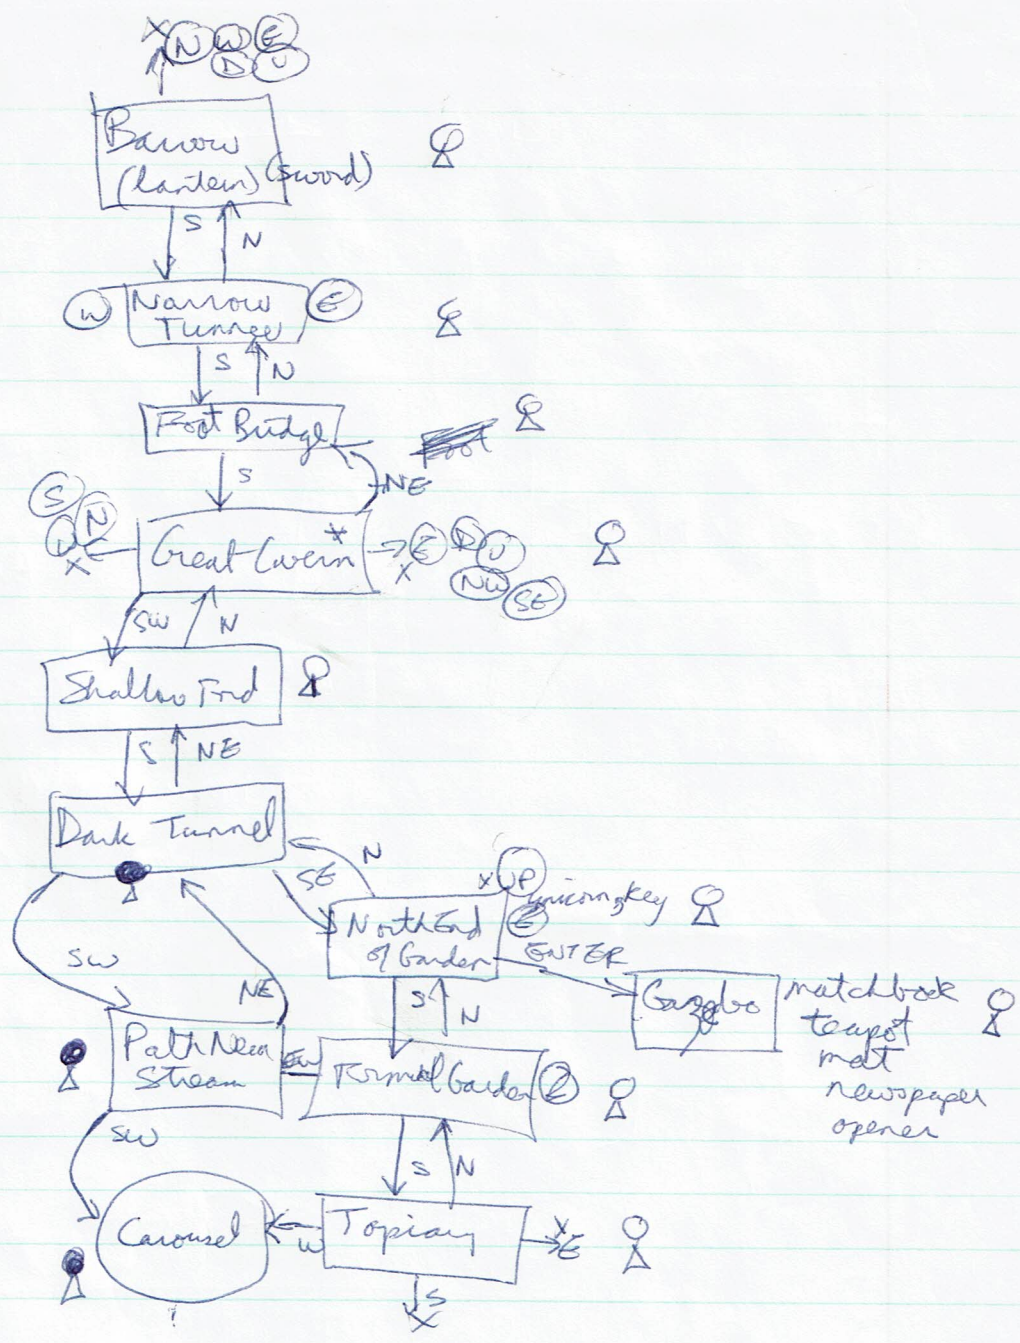 X N W E
D U
Barrow
(lantern) (sword)
S
N
W Narrow E
Tunnel
S N
Foot Bridge
S NE
S
N
W
X
Great Cavern *
E D U
X
NW SE
SW N
Shallow Ford
S NE
Dark Tunnel
N
SE
X UP
unicorns, key
North End
of Garden
E
ENTER
SW
NE
S
N
Gazebo
matchbook
teapot
mat
newspaper
opener
Path Near
Stream
EW
Formal Garden E
SW
S N
Carousel
W
Topiary
X
E
S
X
?